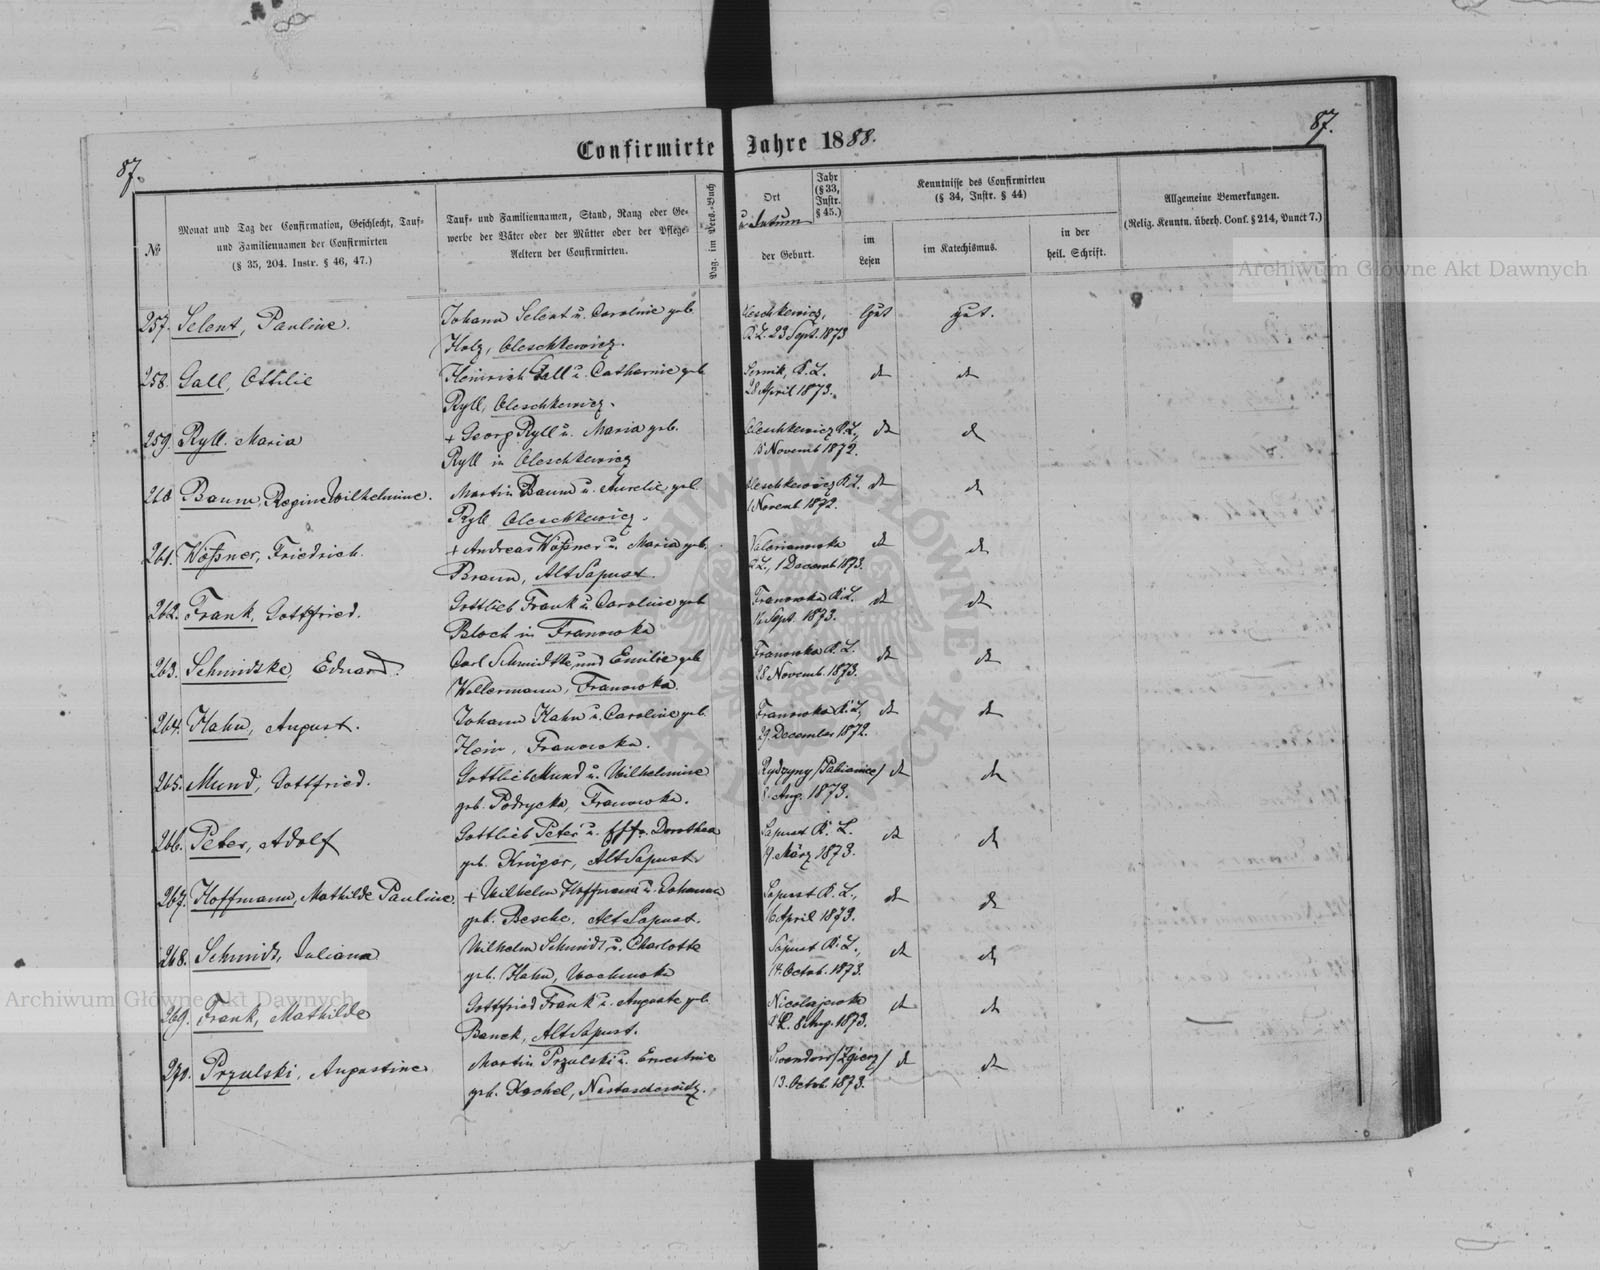 87.
87.
Confirmirte Jahre 1888.
№
Monat und Tag der Confirmation, Geschlecht, Tauf-
und Familiennamen der Confirmirten
(§ 35, 204. Instr. § 46, 47.)
Tauf- und Familiennamen, Stand, Rang oder Ge-
werbe der Väter oder der Mütter oder der Pflege-
Aeltern der Confirmirten.
Pag. im Pers.-Buch
Ort
u. Datum
der Geburt.
Jahr
(§ 33,
Instr.
§ 45.)
Kenntnisse des Confirmirten
(§ 34, Instr. § 44)
im
Lesen
im Katechismus.
in der
heil. Schrift.
Allgemeine Bemerkungen.
(Relig. Kenntn. überh. Conf. § 214, Punct 7.)
Archiwum Główne Akt Dawnych
257. Selent, Pauline. Johann Selent u. Caroline geb. Oleschkewicz, Gut gut.
Holz, Oleschkewicz. K.L. 23 Sept. 1873
258. Gall, Ottilie Heinrich Gall u. Catharine geb. Sernik, K.L. do do
Ryll, Oleschkewicz. 28 April 1873.
259. Ryll. Maria + Georg Ryll u. Maria geb. Oleschkewicz K.L., do do
Ryll in Oleschkewicz 15 Novemb 1872.
260 Baum, Regine Wilhelmine. Martin Baum u. Aurelie geb. Oleschkewicz K.L. do do
Ryll Oleschkewicz. 1 Novemb. 1872.
261. Wößner, Friedrich. + Andreas Wößner u. Maria geb. Valerianowka do do
Braun, Alt Sapust. K.L., 1 Decemb 1873.
262. Frank, Gottfried. Gottlieb Frank u. Caroline geb. Franowka K.L. do do
Bloch in Franowka Sept. 1873.
263. Schmidtke, Eduard. Carl Schmidtke und Emilie geb. Franowka K.L. do do
Wollermann, Franowka. 28 Novemb. 1873.
264. Hahn, August. Johann Hahn u. Caroline geb. Franowka K.L. do do
Hein, Franowka. 29. December 1872.
265. Mund, Gottfried. Gottlieb Mund u. Wilhelmine Rydzyny /Pabianice/ do do
geb. Podrycka, Franowka. Aug. 1873.
266. Peter, Adolf Gottlieb Peter u. Dorothea Sapust K.L. do do
geb. Krüger, Alt Sapust. 9. März 1873.
267. Hoffmann, Mathilde Pauline. + Wilhelm Hoffmann u. Johanna Sapust K.L., do do
geb. Besche. Alt Sapust. 16 April 1873.
268. Schmidt, Juliana Wilhelm Schmidt u. Charlotte Sapust K.L., do do
geb. Hahn, Wochnoka 14. Octob. 1873.
Archiwum Główne Akt Dawnych
269. Frank, Mathilde Gottfried Frank u. Auguste geb. Nicolajewka do do
Banek, Alt Sapust. K.L. 8 Aug. 1873.
270. Przulski, Augustine. Martin Przulski u. Ernestine /Zgierz/ do do
geb. Kochel, Nastaschewitz. 13. Octob. 1873.